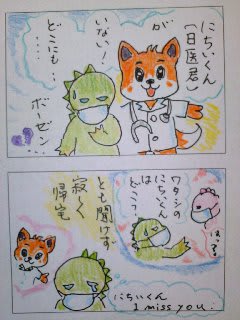 にちいくん
(日医君)
が
いない!
どこにも…
ボーゼン…
はっ
ワタシの
にちいくん
は
どこ…?
とも聞けず
寂しく
帰宅
にちいくん
I miss you.